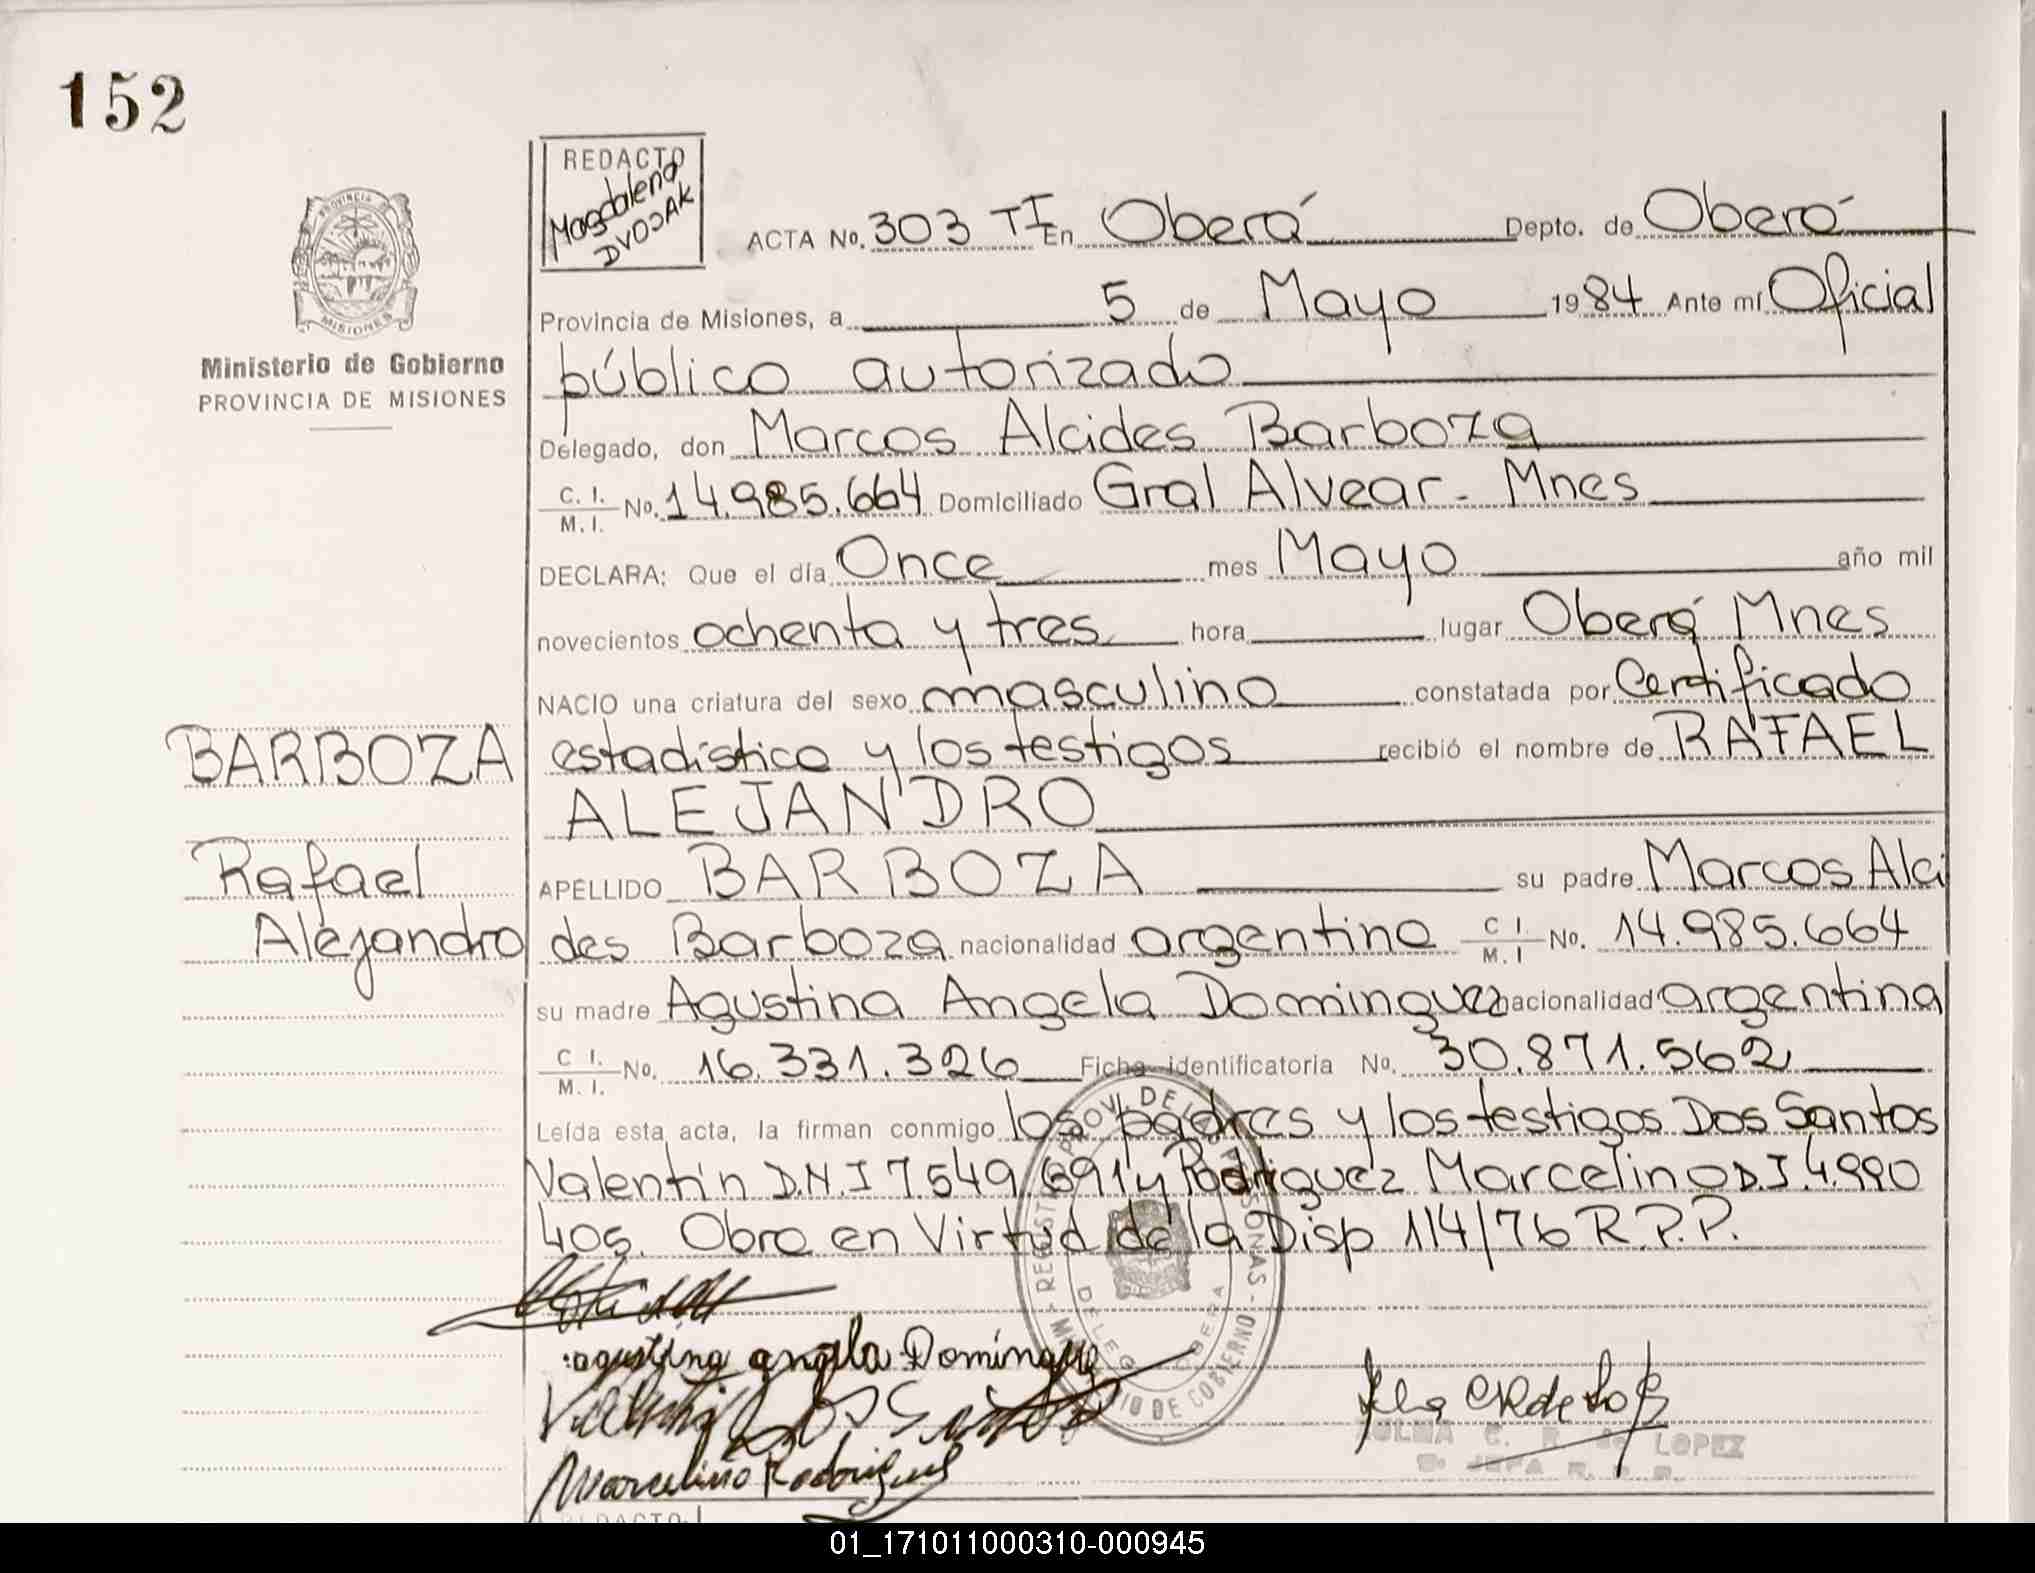 152
REDACTO
Magdalena
DVOJAK
PROVINCIA DE
MISIONES
Ministerio de Gobierno
PROVINCIA DE MISIONES
ACTA No. 303 TI En Oberá Depto. de Oberá
Provincia de Misiones, a 5 de Mayo 1984 Ante mí Oficial
público autorizado
Delegado, don Marcos Alcides Barboza
C. I. / M. I. No. 14.985.664 Domiciliado Gral Alvear - Mnes
DECLARA: Que el día Once mes Mayo año mil
novecientos ochenta y tres hora lugar Oberá Mnes
NACIO una criatura del sexo masculino constatada por Certificado
BARBOZA
estadístico y los testigos recibió el nombre de RAFAEL
ALEJANDRO
Rafael
Alejandro
APELLIDO BARBOZA su padre Marcos Alci
des Barboza nacionalidad argentino C I. / M. I No. 14.985.664
su madre Agustina Angela Dominguez nacionalidad argentina
C I. / M. I. No. 16.331.326 Ficha identificatoria No. 30.871.562
Leída esta, acta, la firman conmigo los padres y los testigos Dos Santos
Valentín D.N.I 7.549.691 y Rodriguez Marcelino D.I.4.990
409. Obro en Virtud de la Disp 114/76 R.P.P.
agustina angela Dominguez
Marcelino Rodriguez
REGISTRO PROV. DE LAS PERSONAS - MINISTERIO DE GOBIERNO -
DELEG OBERA
ZULMA C. R. de LOPEZ
JEFA R. P. P.
REDACTO
01_171011000310-000945